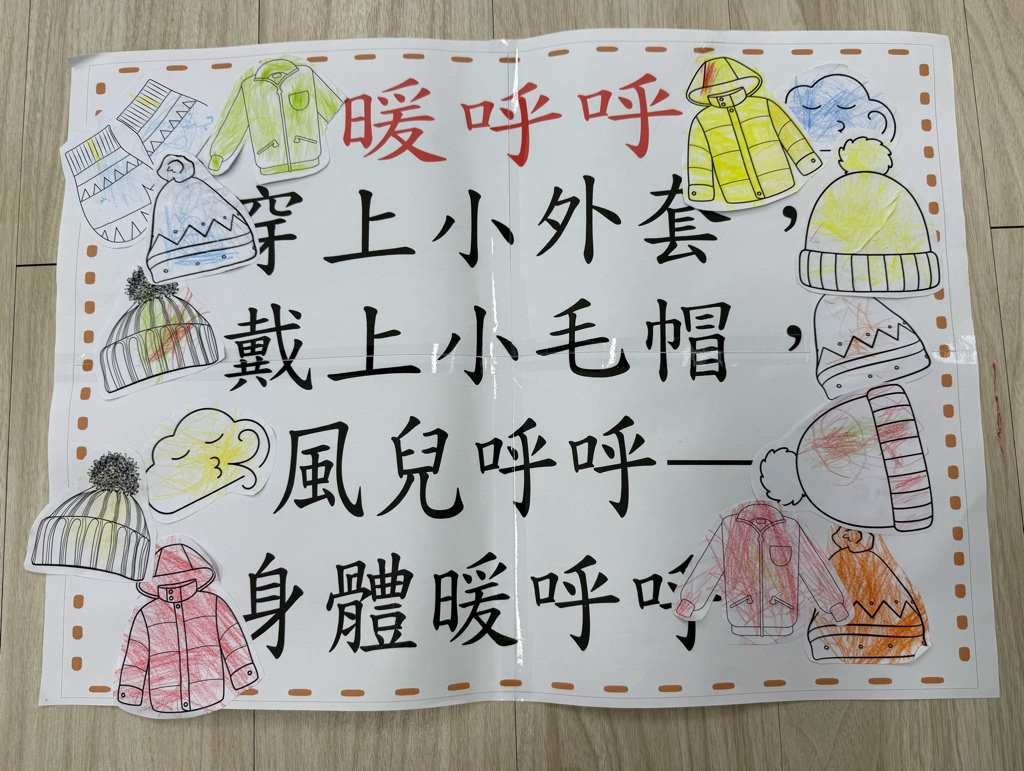 暖呼呼
穿上小外套，
戴上小毛帽，
風兒呼呼—
身體暖呼呼